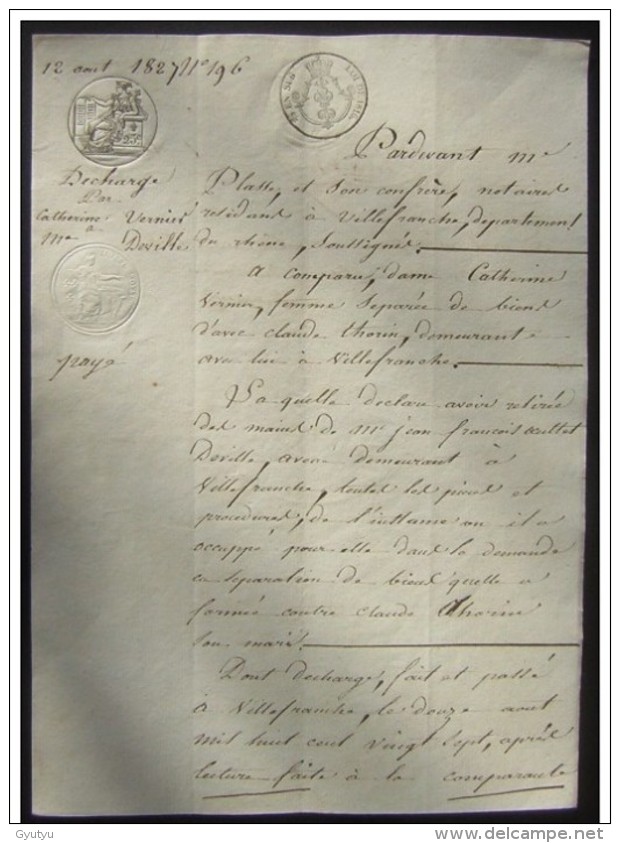 12 aout 1827 N° 196
EN SUS
LOI DE 1816
25c
Decharge
Par
Catherine Vernier
à
Me Deville
payé
Pardevant Me
Platte, et son confrère, notaires
residans à Villefranche, departement
du rhône, soussignés.
A comparu, dame Catherine
Vernier, femme separée de biens
d'avec claude thorin, demeurant
avec lui à Villefranche.
Laquelle declare avoir retirée
des mains de Mr jean françois
Deville, avoué demeurant à
Villefranche, toutes les pieces et
procedures, de l'instance ou il a
occuppé pour elle dans la demande
en separation de biens qu'elle a
formée contre claude thorin
son mari.
Dont decharge, fait et passé
à Villefranche, le douze aout
mil huit cent vingt sept, après
lecture faite à la comparante
Gyutyu
www.delcampe.net